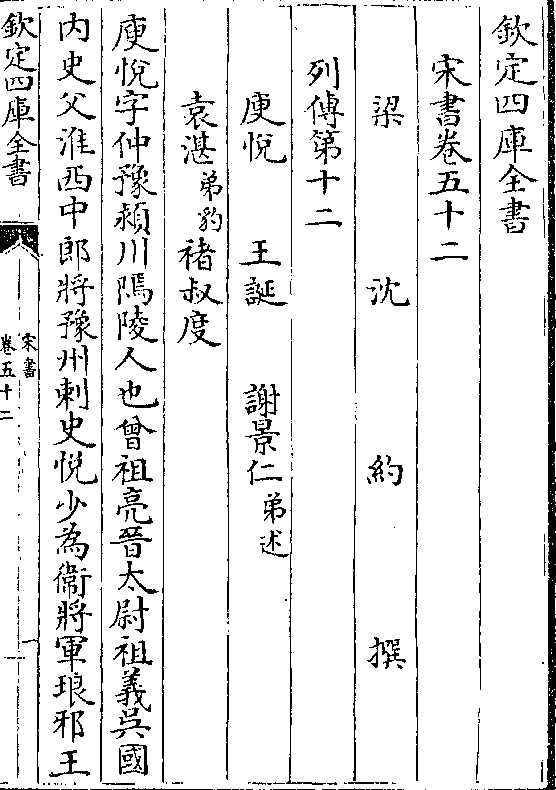 欽定四庫全書
宋書卷五十二
梁沈約撰
列傳第十二
庾悅 王誕 謝景仁弟述
袁湛弟豹 褚叔度
庾悅字仲豫潁川隝陵人也曾祖亮晉太尉祖義吳國
內史父淮西中郎將豫州刺史悅少為衞將軍琅邪王
欽定四庫全書
宋書
卷五十二